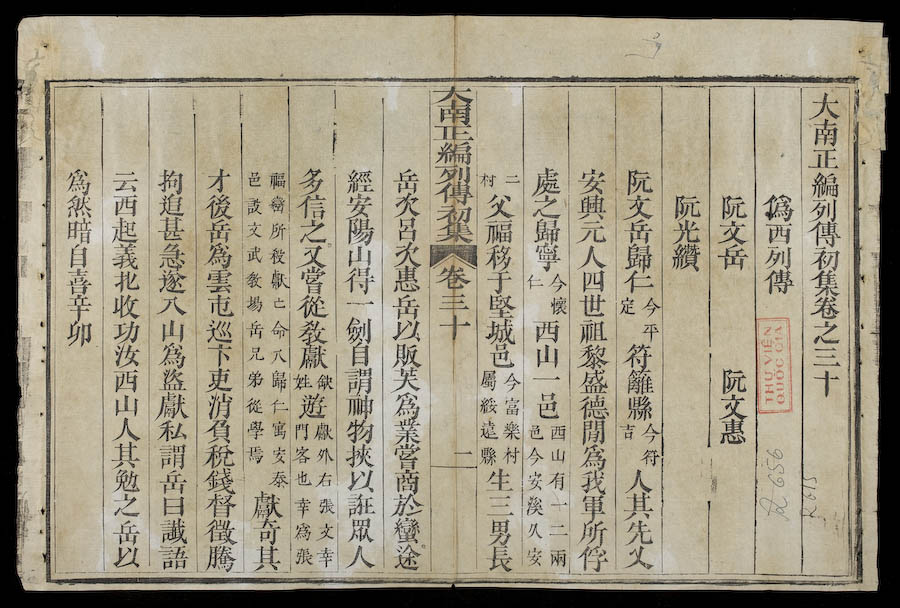 大南正編列傳初集卷之三十
僞西列傳
阮文岳　阮文惠
阮光纘
阮文岳歸仁今平定符籬縣今符吉人其先乂
安興元人四世祖黎盛德間爲我軍所俘
處之歸寧今懷仁西山一邑西山有一二兩邑今安溪久安
二村父福移于堅城邑今富樂村屬綏遠縣生三男長
大南正編列傳初集　卷三十　一
岳次呂次惠岳以販芙爲業嘗商於蠻途
經安陽山得一劍自謂神物挾以誑眾人
多信之又嘗從教獻缺姓遊獻外右張文幸門客也幸爲張
福巒所殺獻亡命入歸仁寓安泰邑設文武教場岳兄弟從學焉獻奇其
才後岳爲雲屯巡卞吏消負稅錢督徵騰
拘追甚急遂入山爲盜獻私謂岳曰讖語
云西起義北收功汝西山人其勉之岳以
爲然暗自喜辛卯
THƯ VIỆN
QUỐC GIA
R 656
R 615